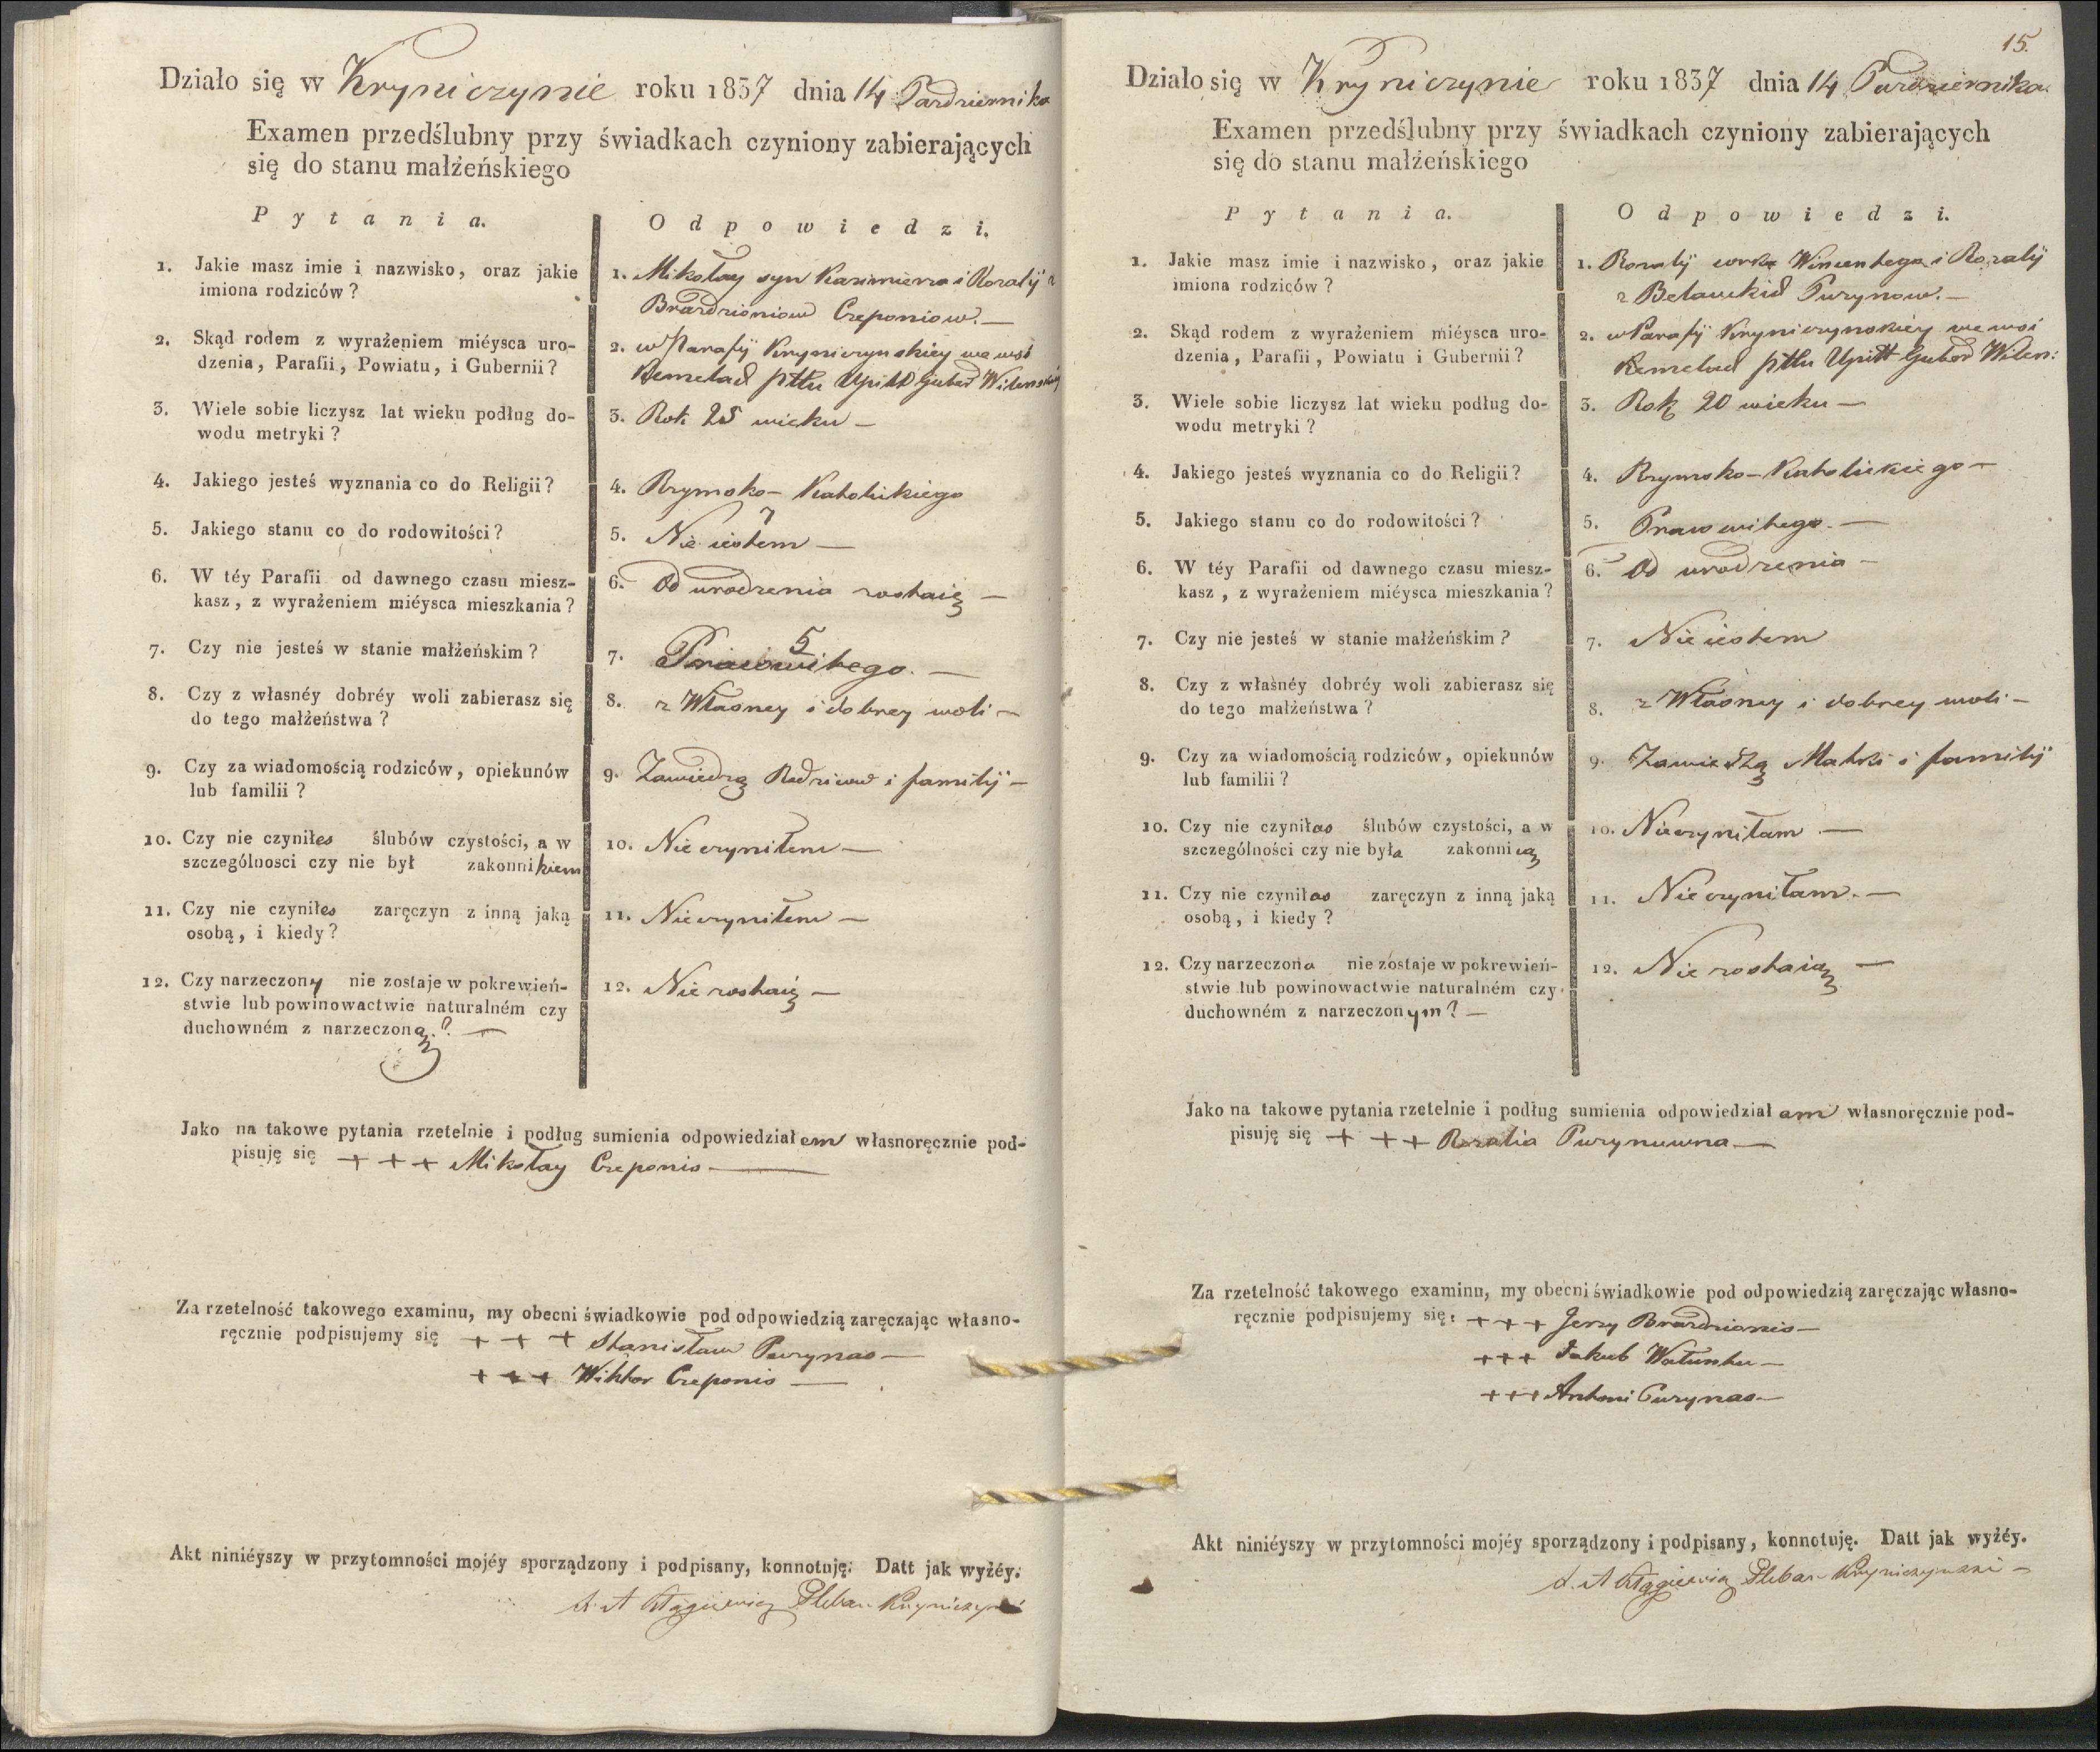 Działo się w Kryniczynie roku 1837 dnia 14 Pazdziernika
Examen przedślubny przy świadkach czyniony zabierających
się do stanu małżeńskiego
Pytania.
Odpowiedzi.
1. Jakie masz imie i nazwisko, oraz jakie
imiona rodziców?
1. Mikołay syn Kazimierza i Rozalij z
Brazdzioniow Czeponiow.—
2. Skąd rodem z wyrażeniem miéysca uro-
dzenia, Parafii, Powiatu, i Gubernii?
2. w Parafij Kryniczynskiey we wsi
Remelad pttu Upitt Guber Wilenskiey
3. Wiele sobie liczysz lat wieku podług do-
wodu metryki?
3. Rok 25 wieku —
4. Jakiego jesteś wyznania co do Religii?
4. Rzymsko-Katolickiego
5. Jakiego stanu co do rodowitości?
7
5. Nie iestem —
6. W téy Parafii od dawnego czasu miesz-
kasz, z wyrażeniem miéysca mieszkania?
6. Od urodzenia zostaię —
7. Czy nie jesteś w stanie małżeńskim?
5
7. Prawowitego. —
8. Czy z własnéy dobréy woli zabierasz się
do tego małżeństwa?
8. z Własney i dobrey woli —
9. Czy za wiadomością rodziców, opiekunów
lub familii?
9. Zawiedzą Rodzicow i familij —
10. Czy nie czyniłes ślubów czystości, a w
szczególnosci czy nie był zakonnikiem
10. Nie czyniłem —
11. Czy nie czyniłes zaręczyn z inną jaką
osobą, i kiedy?
11. Nie czyniłem —
12. Czy narzeczony nie zostaje w pokrewień-
stwie lub powinowactwie naturalném czy
duchowném z narzeczoną.? —
12. Nie zostaię —
Jako na takowe pytania rzetelnie i podług sumienia odpowiedziałem własnoręcznie pod-
pisuję się + + + Mikołay Czeponis —
Za rzetelność takowego examinu, my obecni świadkowie pod odpowiedzią zaręczając własno-
ręcznie podpisujemy się + + + Stanisław Puzynas —
+ + + Wiktor Czeponis —
Akt niniéyszy w przytomności mojéy sporządzony i podpisany, konnotuję. Datt jak wyżéy.
Pleban
15.
Działo się w Kryniczynie roku 1837 dnia 14 Pazdziernika.
Examen przedślubny przy świadkach czyniony zabierających
się do stanu małżeńskiego
Pytania.
Odpowiedzi.
1. Jakie masz imie i nazwisko, oraz jakie
imiona rodziców?
1. Rozalij corka Wincentego i Rozalij
z Belauckid Puzynow.—
2. Skąd rodem z wyrażeniem miéysca uro-
dzenia, Parafii, Powiatu i Gubernii?
2. w Parafij Kryniczynskiey we wsi
Remelad pttu Upitt Guber Wilen:
3. Wiele sobie liczysz lat wieku podług do-
wodu metryki?
3. Rok 20 wieku —
4. Jakiego jesteś wyznania co do Religii?
4. Rzymsko-Katolickiego —
5. Jakiego stanu co do rodowitości?
5. Prawowitego. —
6. W téy Parafii od dawnego czasu miesz-
kasz, z wyrażeniem miéysca mieszkania?
6. Od urodzenia —
7. Czy nie jesteś w stanie małżeńskim?
7. Nie iestem
8. Czy z własnéy dobréy woli zabierasz się
do tego małżeństwa?
8. z Własney i dobrey woli —
9. Czy za wiadomością rodziców, opiekunów
lub familii?
9. Zawiedzą Matki i familij
10. Czy nie czyniłas ślubów czystości, a w
szczególności czy nie była zakonnicą
10. Nieczyniłam —
11. Czy nie czyniłas zaręczyn z inną jaką
osobą, i kiedy?
11. Nie czyniłam. —
12. Czy narzeczona nie zostaje w pokrewień-
stwie lub powinowactwie naturalném czy
duchowném z narzeczonym? —
12. Nie zostaią —
Jako na takowe pytania rzetelnie i podług sumienia odpowiedziałam własnoręcznie pod-
pisuję się + + + Rozalia Puzynuwna —
Za rzetelność takowego examinu, my obecni świadkowie pod odpowiedzią zaręczając własno-
ręcznie podpisujemy się: + + + Jerzy Brazdzionis —
+++ Jakub Watunku —
+++ Antoni Puzynas —
Akt niniéyszy w przytomności mojéy sporządzony i podpisany, konnotuję. Datt jak wyżéy.
Pleban Kryniczynski —